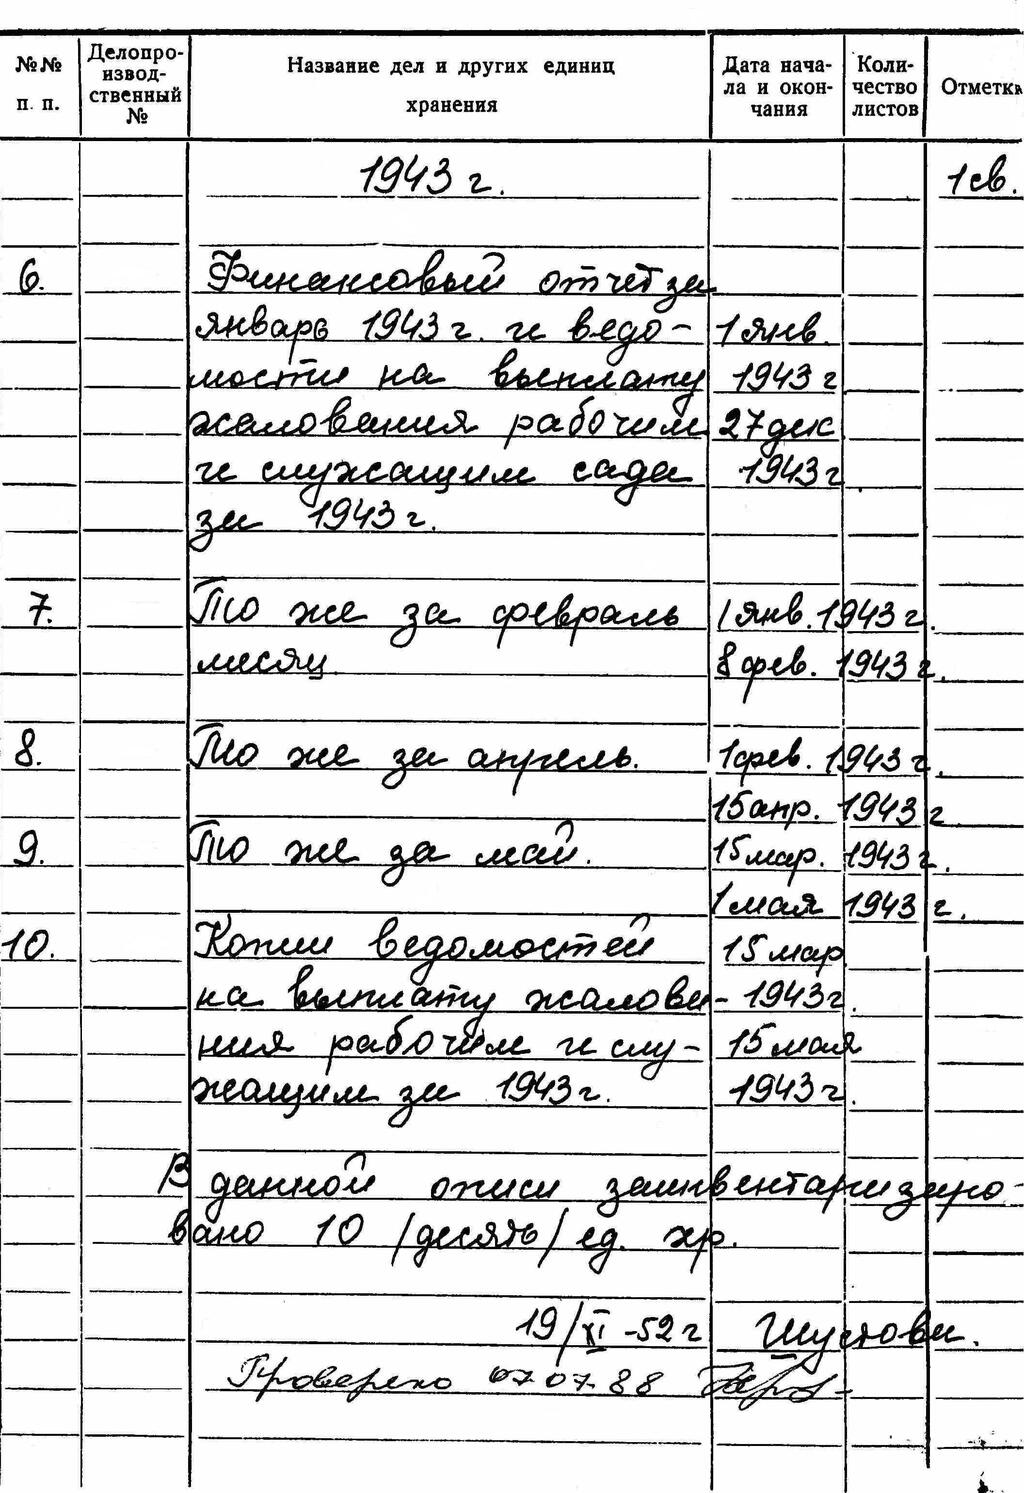 №№ п. п. Делопроизвод-ственный № Название дел и других единиц хранения Дата нача-ла и окон-чания Коли-чество листов Отметки
1943 г. 1 св.
6. Финансовый отчет за
январь 1943 г. и ведо- 1 янв.
мости на выплату 1943 г
жалования рабочим 27 дек
и служащим сада 1943 г
за 1943 г.
7. То же за февраль 1 янв. 1943 г.
месяц 8 фев. 1943 г.
8. То же за апрель. 1 фев. 1943 г.
15 апр. 1943 г
9. То же за май. 15 мар. 1943 г.
1 мая 1943 г.
10. Копии ведомостей 15 мар
на выплату жалова- 1943 г.
ния рабочим и слу- 15 мая
жащим за 1943 г. 1943 г.
В данной описи заинвентаризиро-
вано 10 /десять/ ед. хр.
19/XI -52 г Шустова.
Проверено 07.07.88